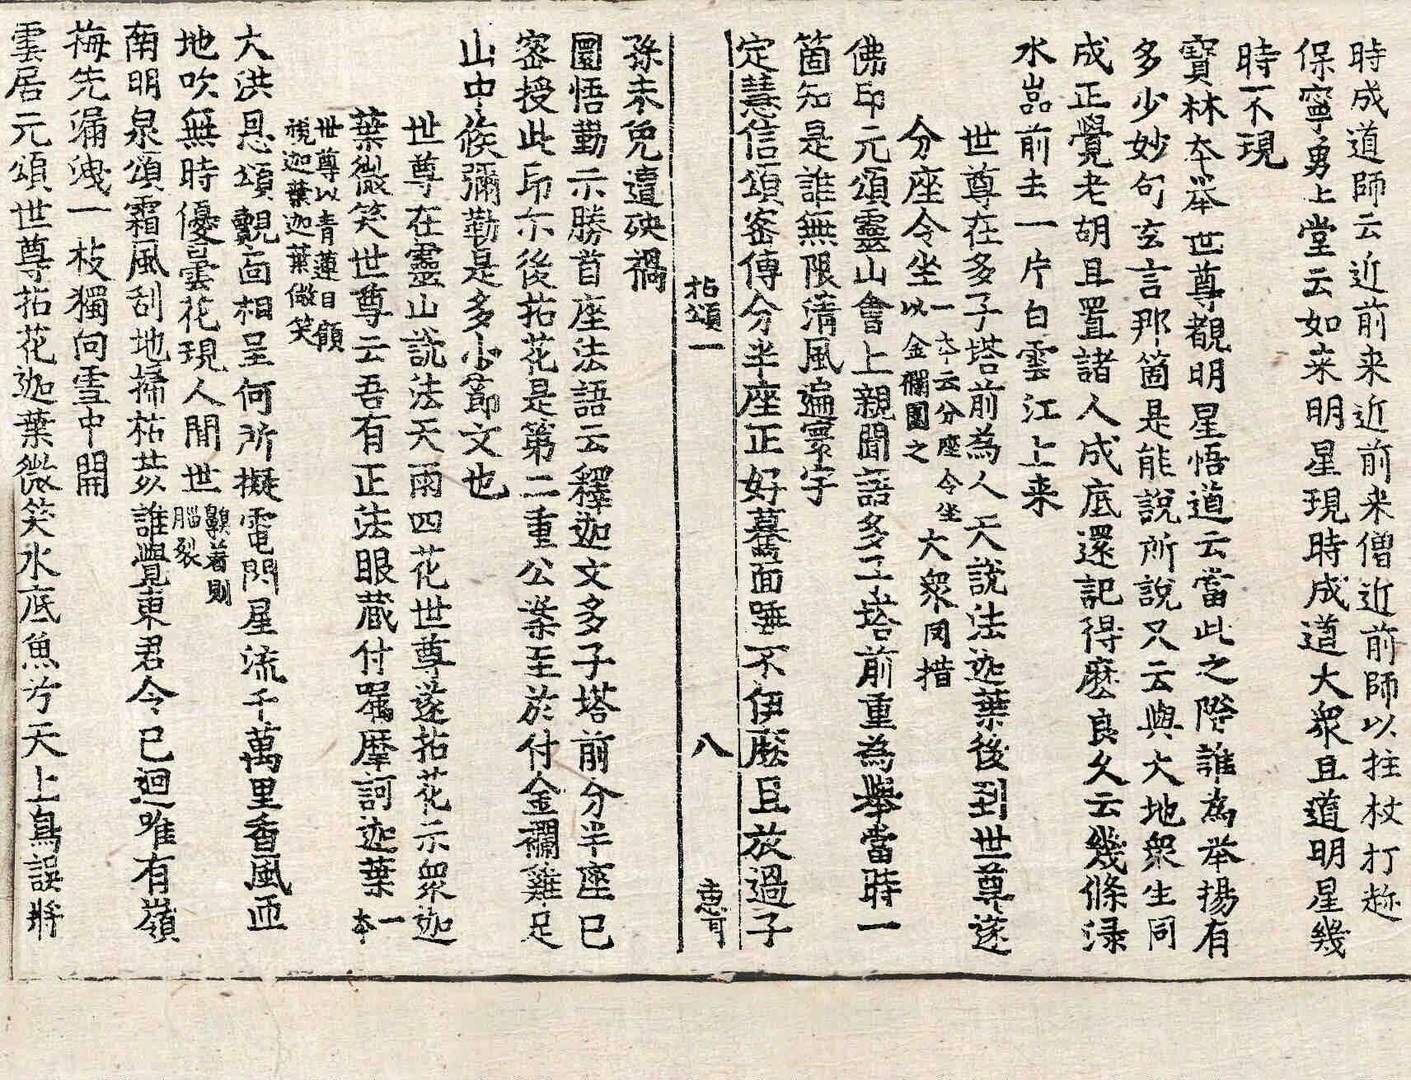 時成道師云近前来近前来僧近前師以拄杖打趂
保寧勇上堂云如来明星現時成道大衆且道明星幾
時不現
寶林本举世尊覩明星悟道云當此之際誰為举揚有
多少妙句玄言那箇是能說所說又云與大地衆生同
成正覺老胡且置諸人成底還記得麽良久云幾條渌
水嵒前去一片白雲江上来
世尊在多子塔前為人天說法迦葉後到世尊遂
分座令坐一本云分座令坐以金襴圍之大衆罔措
佛印元頌靈山會上親聞語多子塔前重為舉當時一
箇知是誰無限清風遍寰宇
定慧信頌密傳分半座正好驀面唾不伊麽且放過子
拈頌一 八 恵可
孫未免遭殃禍
圜悟勤示勝首座法語云釋迦文多子塔前分半座已
密授此印尓後拈花是第二重公案至於付金襴雞足
山中候彌勒是多少節文也
世尊在靈山說法天雨四花世尊遂拈花示衆迦
葉微笑世尊云吾有正法眼藏付囑摩訶迦葉一本
世尊以青蓮目顧視迦葉迦葉微笑
大洪恩頌覿面相呈何所擬電閃星流千萬里香風匝
地吹無時優曇花現人間世嗅著則腦裂
南明泉頌霜風刮地掃枯荄誰覺東君令已迴唯有嶺
梅先漏洩一枝獨向雪中開
雲居元頌世尊拈花迦葉微笑水底魚兮天上鳥誤將